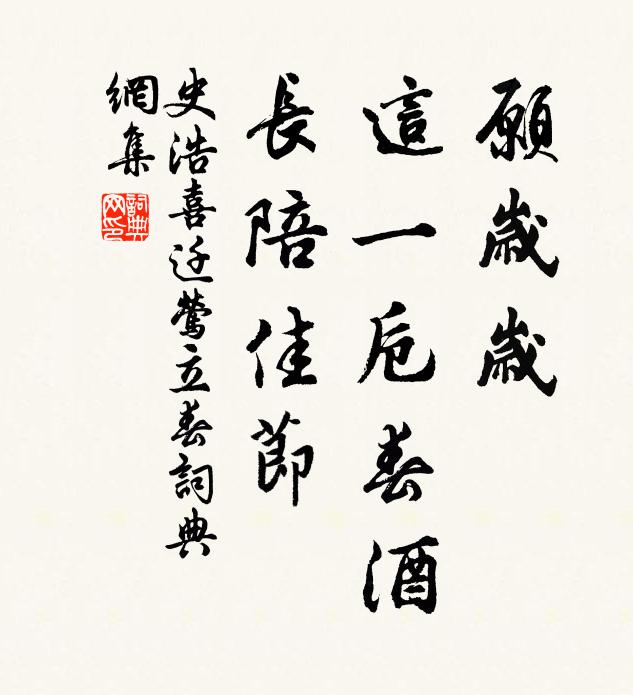 願歲歲
這一卮春酒
長陪佳節
史浩喜迁鶯立春詞典
網集
詞典
网印